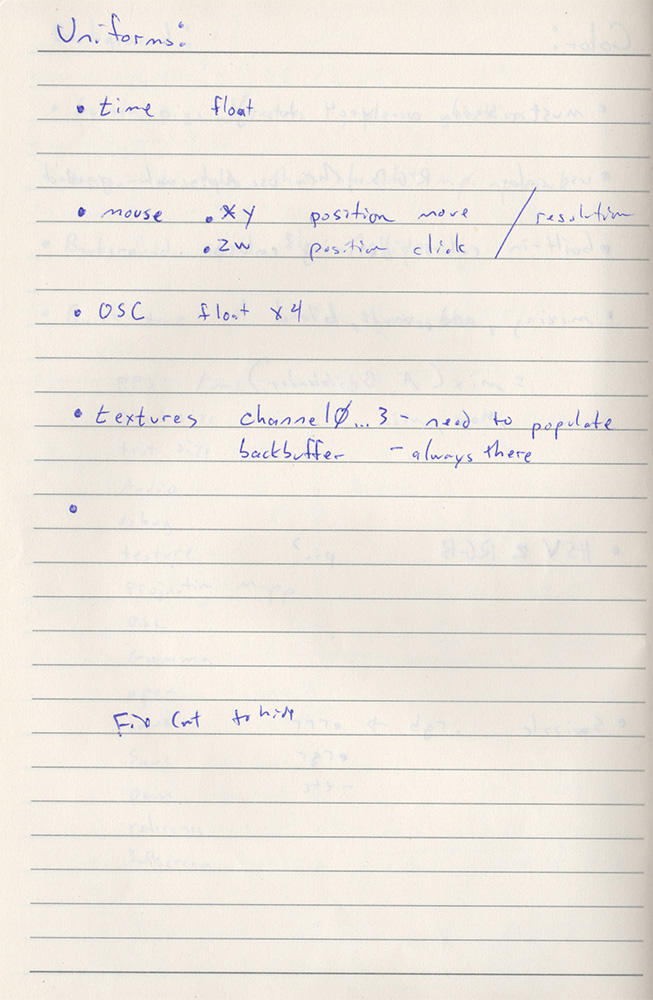 Uniforms:
• time float
• mouse .xy position move / resolution
.zw position click
• OSC float x4
• textures channel0...3 - need to populate
backbuffer - always there
•
to hide